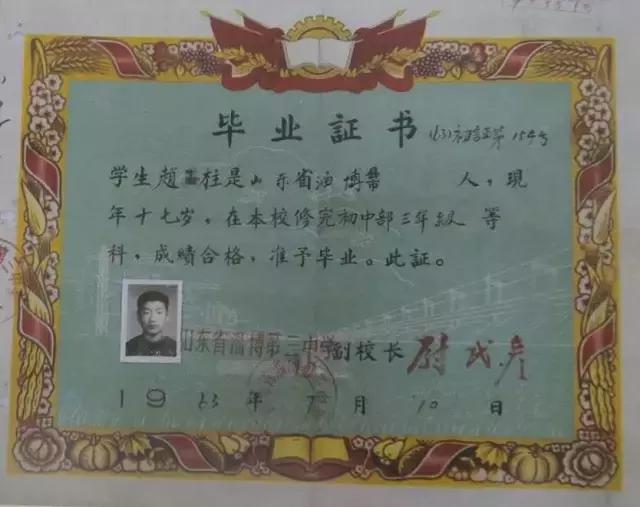 毕业証书
(63)初 证第154号
学生趙 柱是山东省淄博市 人，現
年十七岁，在本校修完初中部三年級 等
科，成績合格，准予毕业。此証。
山东省淄博第三中学副校长 尉
1963年7月10日